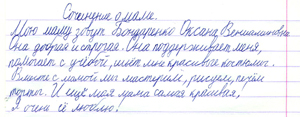 Сочинение о маме.
Мою маму зовут Бондаренко Оксана Вениаминовна.
Она добрая и строгая. Она поддерживает меня,
помогает с учёбой, шьёт мне красивые костюмы.
Вместе с мамой мы мастерим, рисуем, печём
торты. И ещё моя мама самая красивая.
Я очень её люблю!